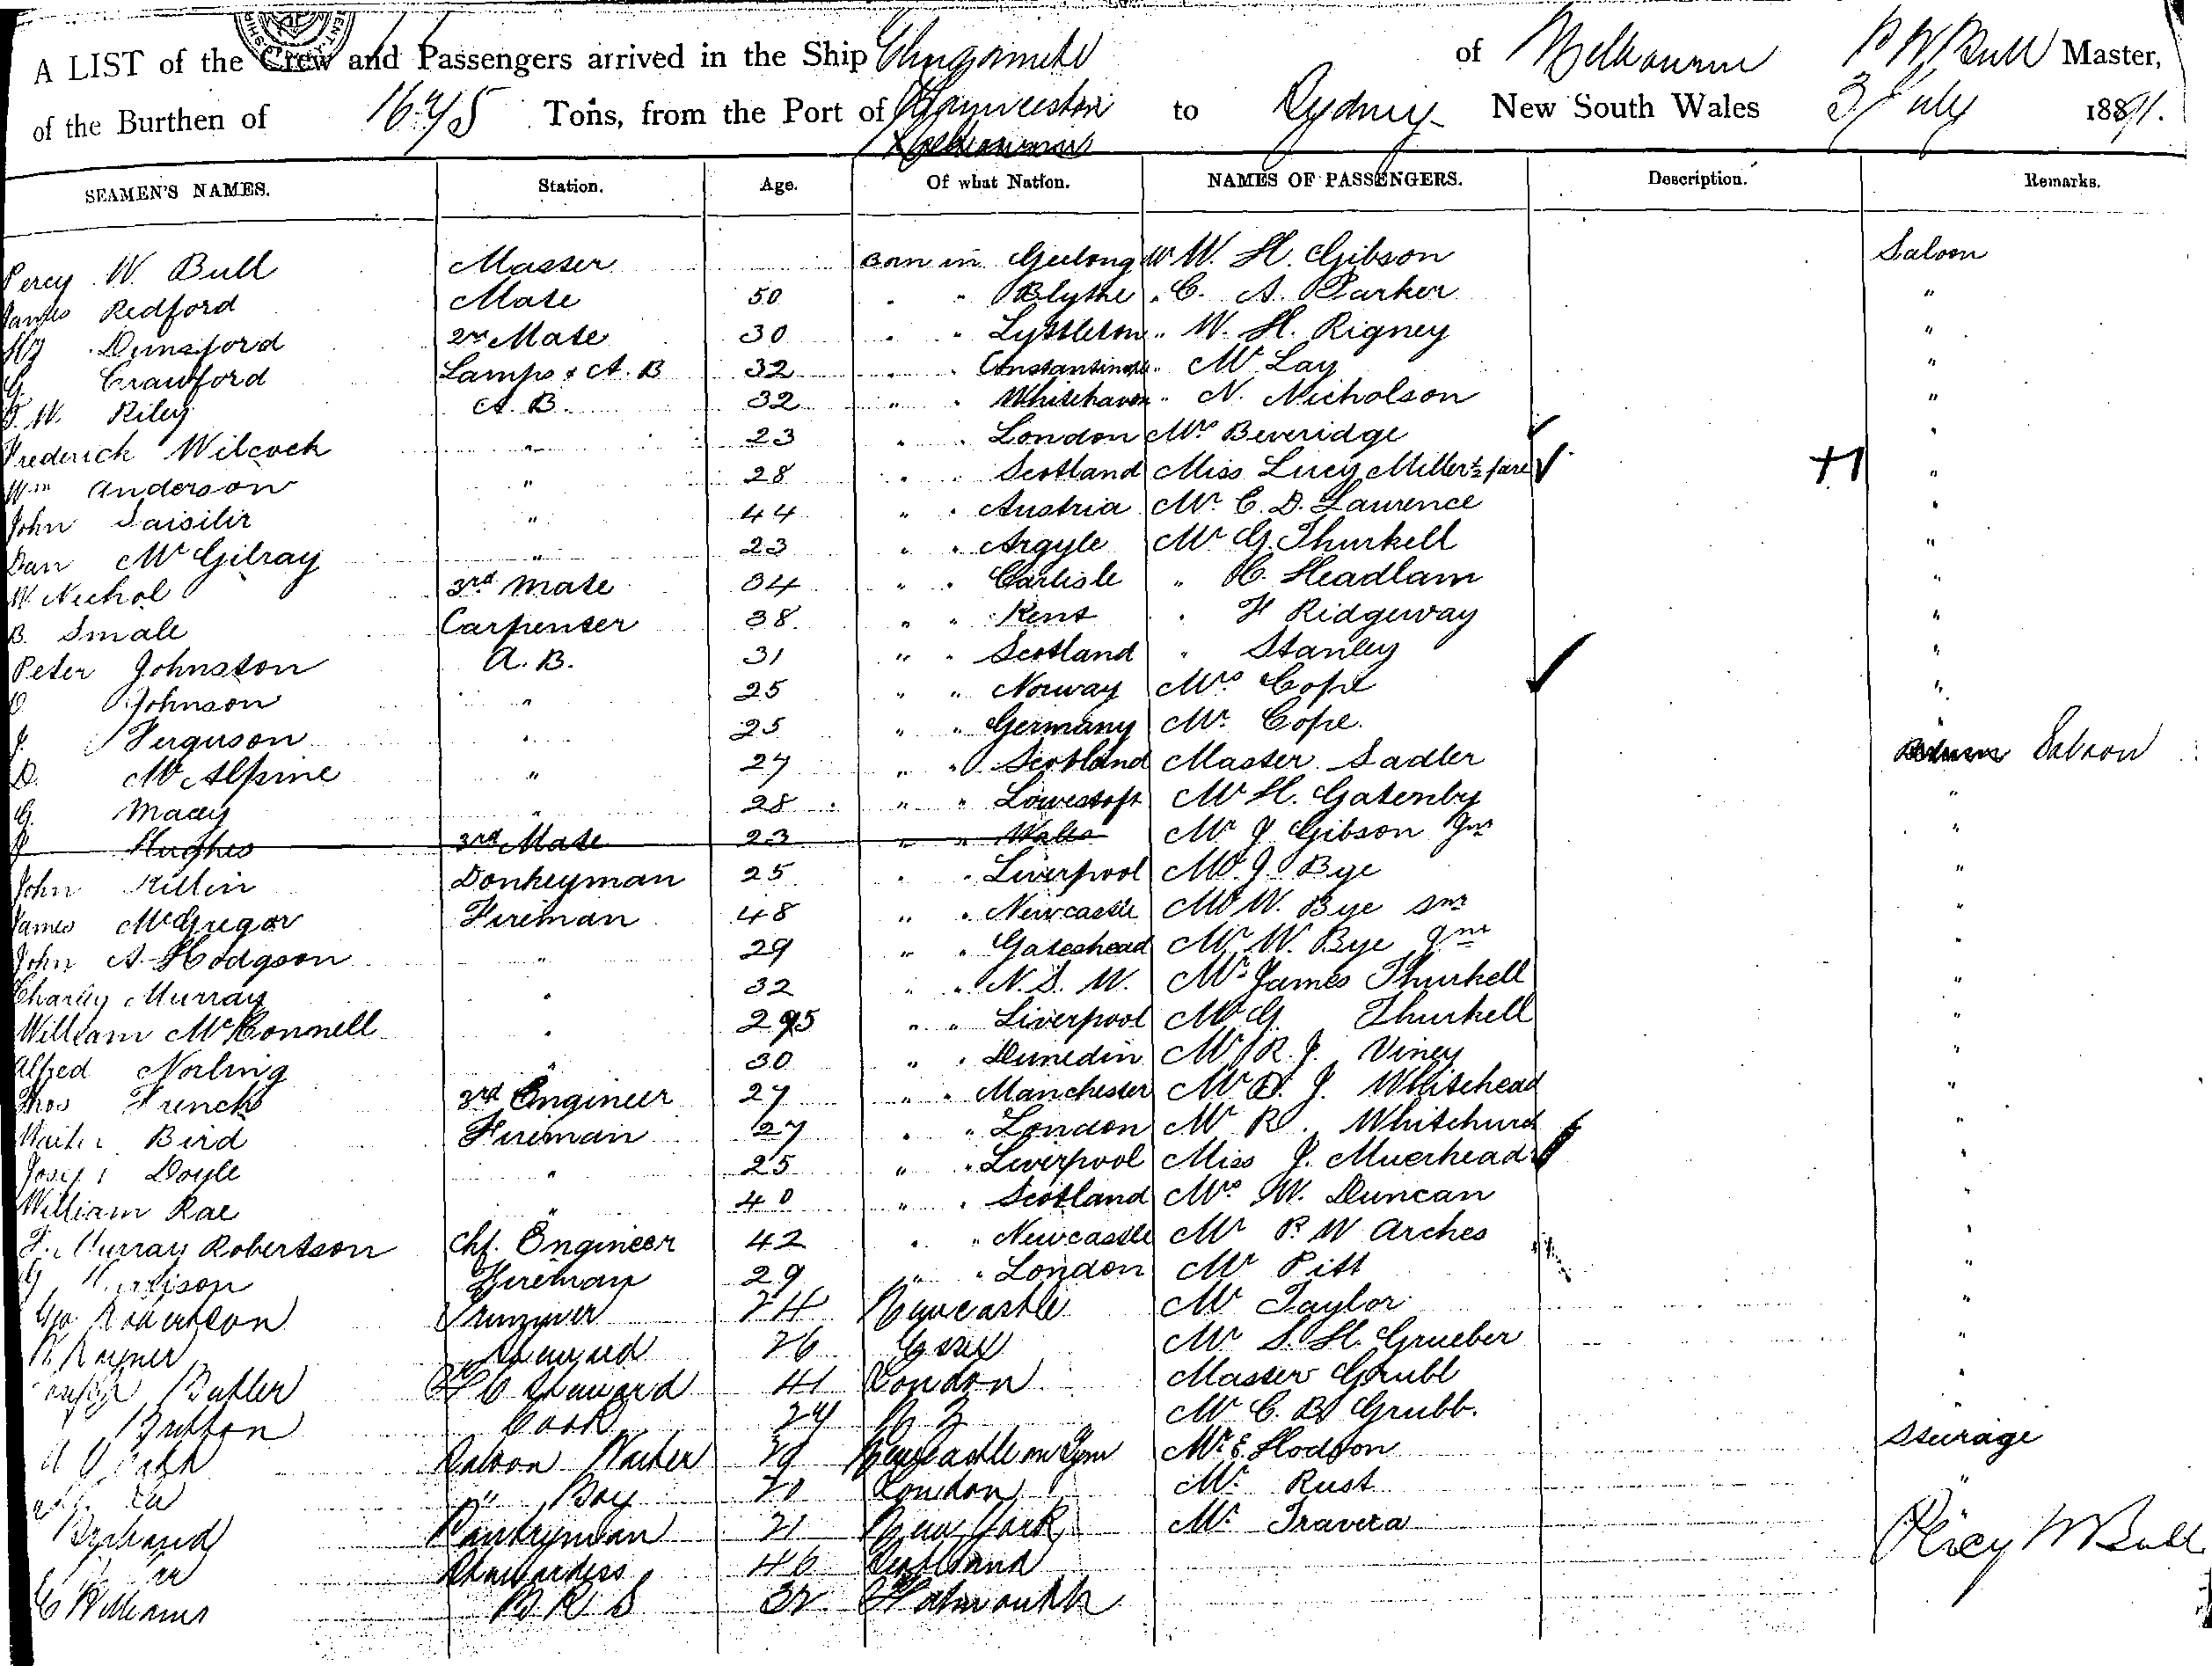 A LIST of the Crew and Passengers arrived in the Ship Elingamite of Melbourne P W Bull Master,
of the Burthen of 1675 Tons, from the Port of Launceston to Sydney New South Wales 3 July 1891.
SEAMEN'S NAMES. Station. Age. Of what Nation. NAMES OF PASSENGERS. Description. Remarks.
Percy W. Bull Master Born in Geelong Mr W. H. Gibson Saloon
James Redford Mate 50 " " Blythe " C. A. Parker "
Hy Dunsford 2nd Mate 30 " " Lyttleton " W. H. Rigney "
G. Crawford Lamps & A. B 32 " " Constantinople " Mr Lay "
T. W. Riley A. B. 32 " " Whitehaven " N. Nicholson "
Frederick Wilcock " 23 " " London Mrs Beveridge "
Wm Anderson " 28 " " Scotland Miss Lucy Miller ½ fare "
John " 44 " " Austria Mr C. D. Laurence "
Dan McGilray " 23 " " Argyle Mr G. Thurkell "
W. Nichol 3rd Mate 34 " " Carlisle " C. Headlam "
B. Smale Carpenter 38 " " Kent " F Ridgeway "
Peter Johnston A. B. 31 " " Scotland " Stanley "
O Johnson " 25 " " Norway Mrs Cope "
J. Ferguson " 25 " " Germany Mr. Cope "
D. McAlpine " 27 " " Scotland Master Sadler Saloon
G. Macey " 28 " " Lowestoft Mr H. Gatenby "
J Hughes 3rd Mate 23 " " Wales Mr J Gibson Jnr "
John Killin Donkeyman 25 " " Liverpool Mr J. Bye "
James McGregor Fireman 48 " " Newcastle Mr W. Bye Snr "
John A. Hodgson " 29 " " Gateshead Mr W. Bye Jnr "
Charley Murray " 32 " " N. S. W. Mr James Thurkell "
William McConnell " 25 " " Liverpool Mr G. Thurkell "
Alfred Norling " 30 " " Dunedin Mr R. J. Viney "
Thos French 3rd Engineer 27 " " Manchester Mr D. J. Whitehead "
Walter Bird Fireman 27 " " London Mr R. Whitchurch "
Joseph Doyle " 25 " " Liverpool Miss J. Muerhead "
William Rae " 40 " " Scotland Mrs W. Duncan "
Murray Robertson Chf. Engineer 42 " " Newcastle Mr P. W Arches "
Fireman 29 " " London Mr Pitt "
Geo Robertson Trimmer 24 Newcastle Mr Taylor "
R Rayner Steward 26 Essex Mr S. H. Grueber "
Butler Steward 41 London Master Grubb "
Button Cook 27 N Z Mr C. B Grubb. "
Saloon Waiter 29 Newcastle on Tyne Mr E Hodson Steerage
" Boy 20 London Mr Rust "
Pantryman 21 New York Mr Travera "
Stewardess 46 Scotland Percy W Bull
C Williams B R S 32 Falmouth